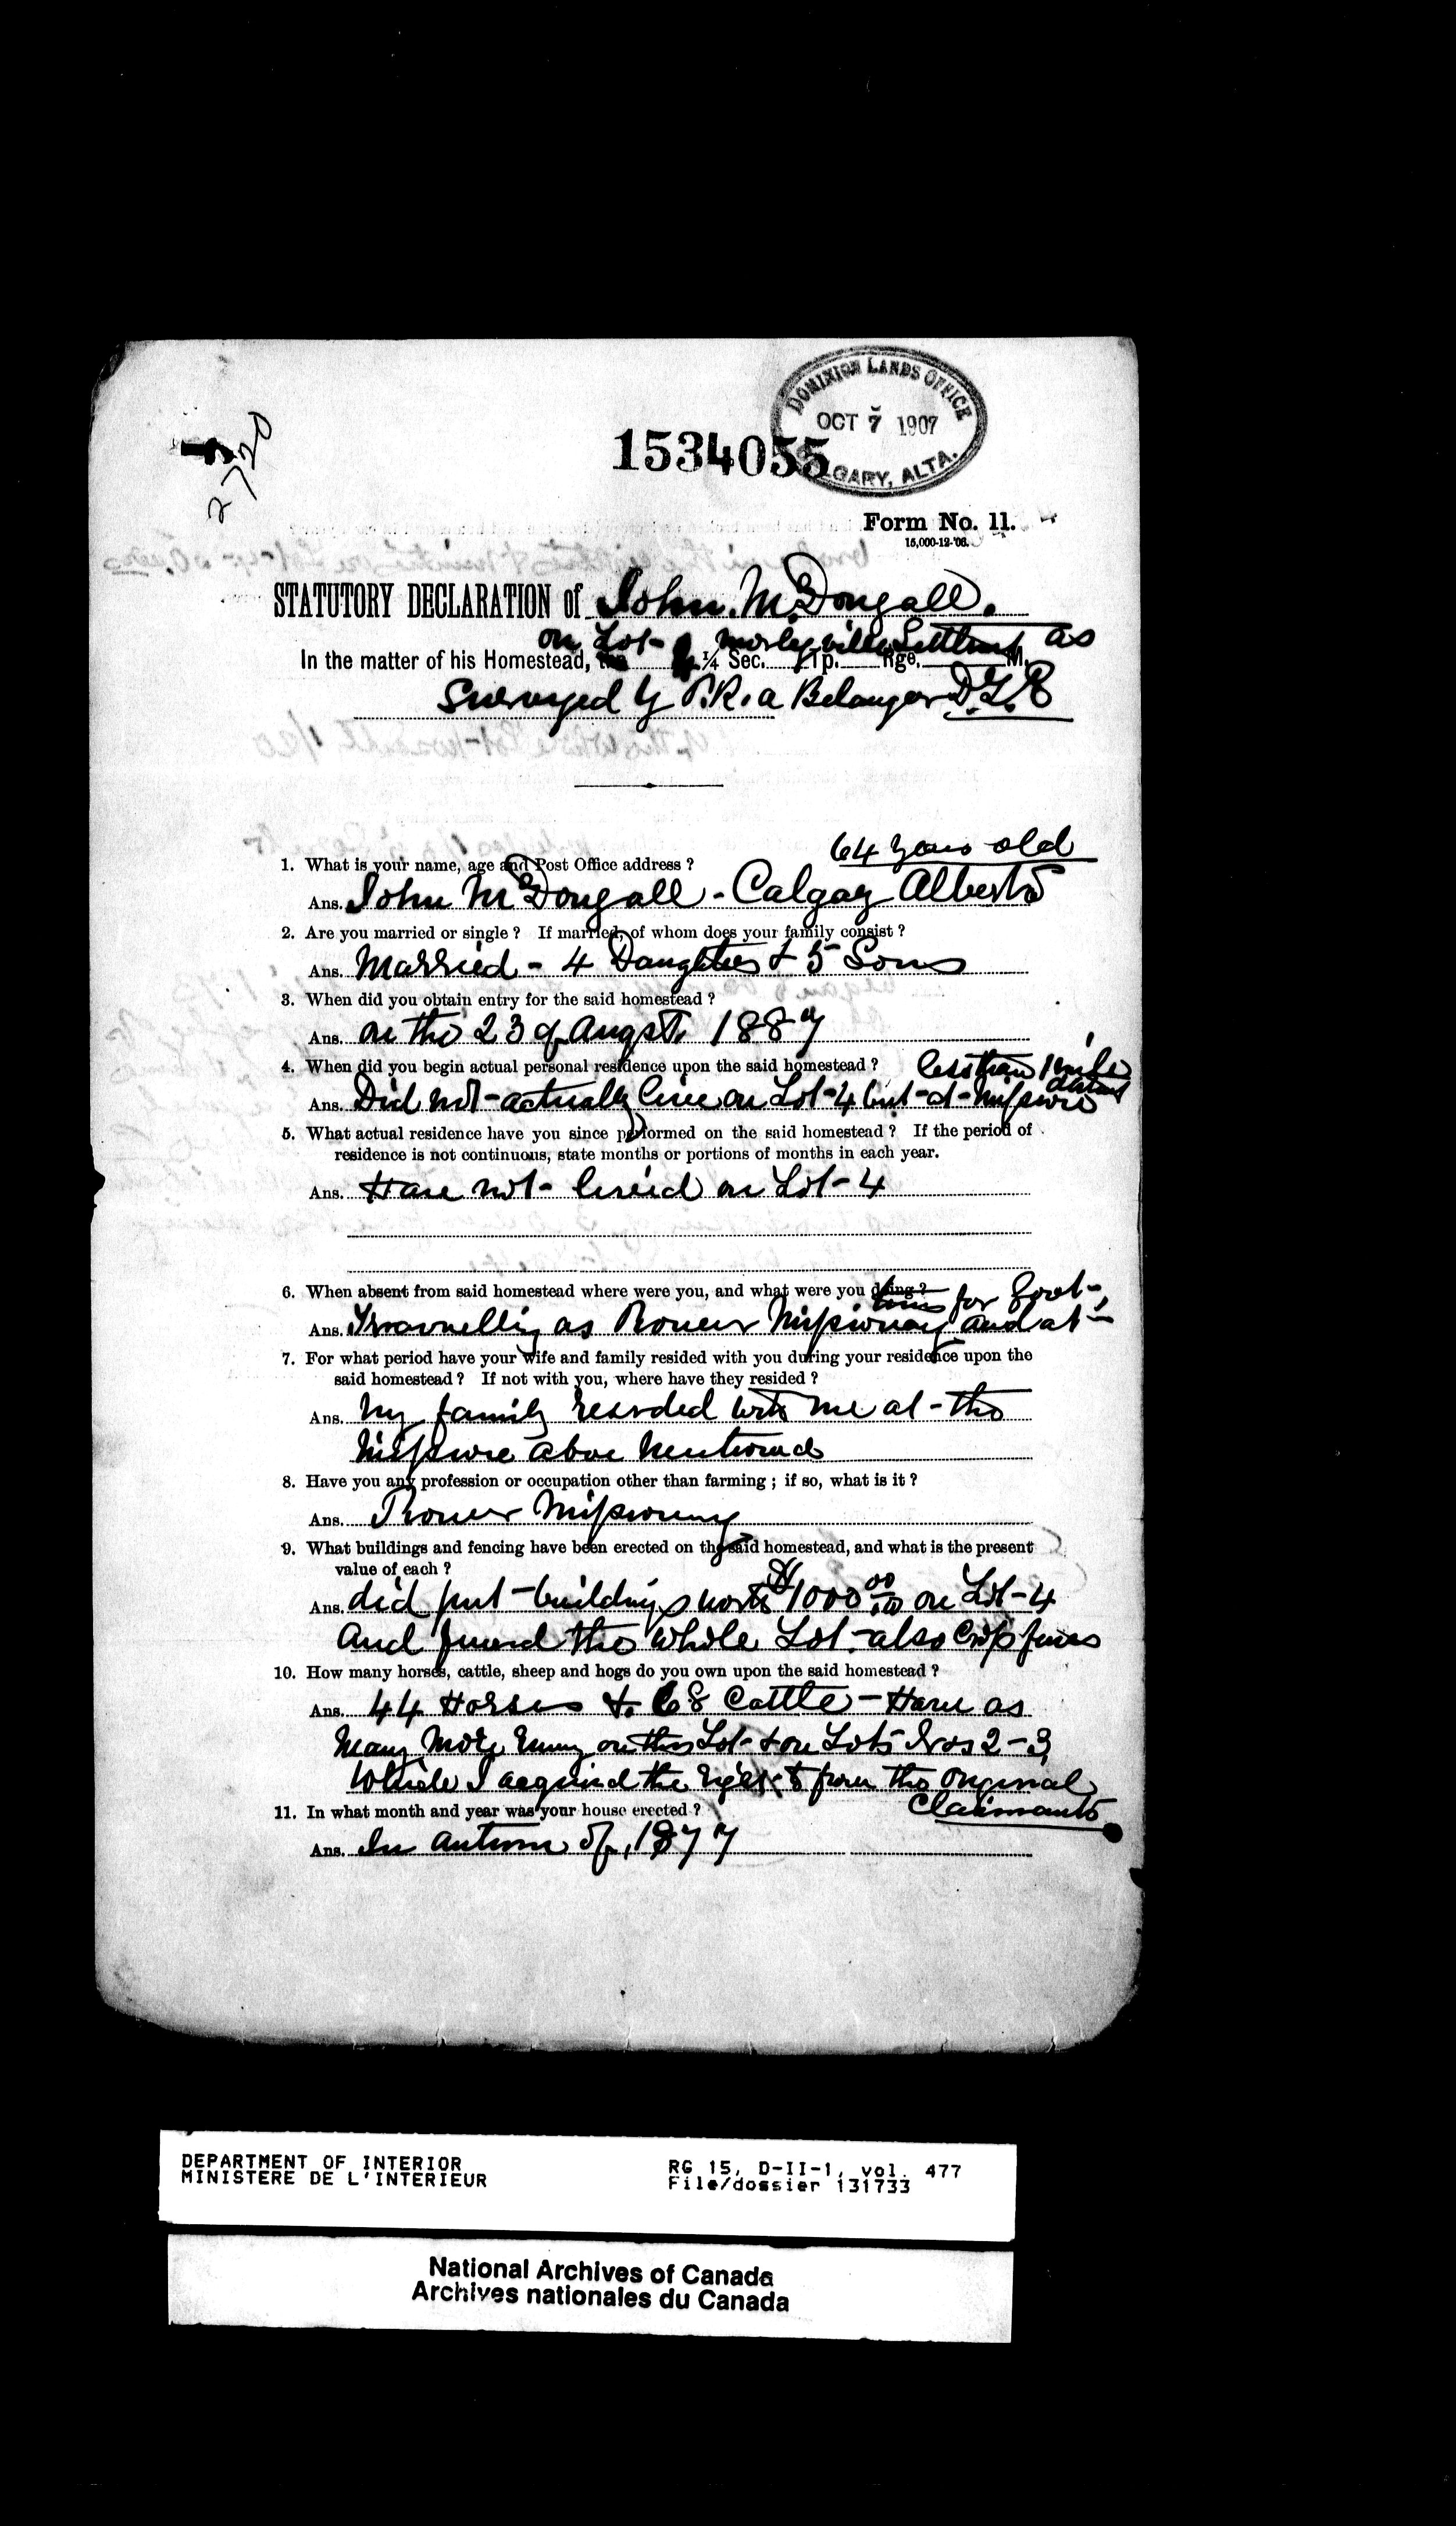 2720
DOMINION LANDS OFFICE
OCT 7 1907
CALGARY, ALTA.
1534055
Form No. 11.
15,000-12-'06.
STATUTORY DECLARATION of John McDougall.
on Lot 4 Morleyville Settlmt as
In the matter of his Homestead, the ¼ Sec. Tp. Rge. M.
Surveyed by P.R.A Belanger D.L.S
64 years old
1. What is your name, age and Post Office address ?
Ans. John McDougall - Calgary Alberta
2. Are you married or single ? If married, of whom does your family consist ?
Ans. Married - 4 Daughters & 5 Sons
3. When did you obtain entry for the said homestead ?
Ans. on the 23 of Augst. 1887
4. When did you begin actual personal residence upon the said homestead ? less than 1 mile
distant
Ans. Did not - actually live on Lot - 4 but - at - Mission
5. What actual residence have you since performed on the said homestead ? If the period of
residence is not continuous, state months or portions of months in each year.
Ans. Have not - lived on Lot - 4
6. When absent from said homestead where were you, and what were you doing ? times for Govt -,
Ans. Travelling as Pioneer Missionary and at -
7. For what period have your wife and family resided with you during your residence upon the
said homestead ? If not with you, where have they resided ?
Ans. My family resided with me at - the
Mission above mentioned
8. Have you any profession or occupation other than farming ; if so, what is it ?
Ans. Pioneer Missionary
9. What buildings and fencing have been erected on the said homestead, and what is the present
value of each ?
Ans. did put - buildings worth $1000.00 on Lot - 4
and fenced the whole Lot - also Crop fences
10. How many horses, cattle, sheep and hogs do you own upon the said homestead ?
Ans. 44 Horses & 68 Cattle - Have as
many more on this Lot - & on Lots Nos 2 - 3
Which I acquired the right to from the original
Claimants
11. In what month and year was your house erected ?
Ans. In autumn of, 1877
DEPARTMENT OF INTERIOR
MINISTERE DE L'INTERIEUR
RG 15, D-II-1, vol. 477
File/dossier 131733
National Archives of Canada
Archives nationales du Canada